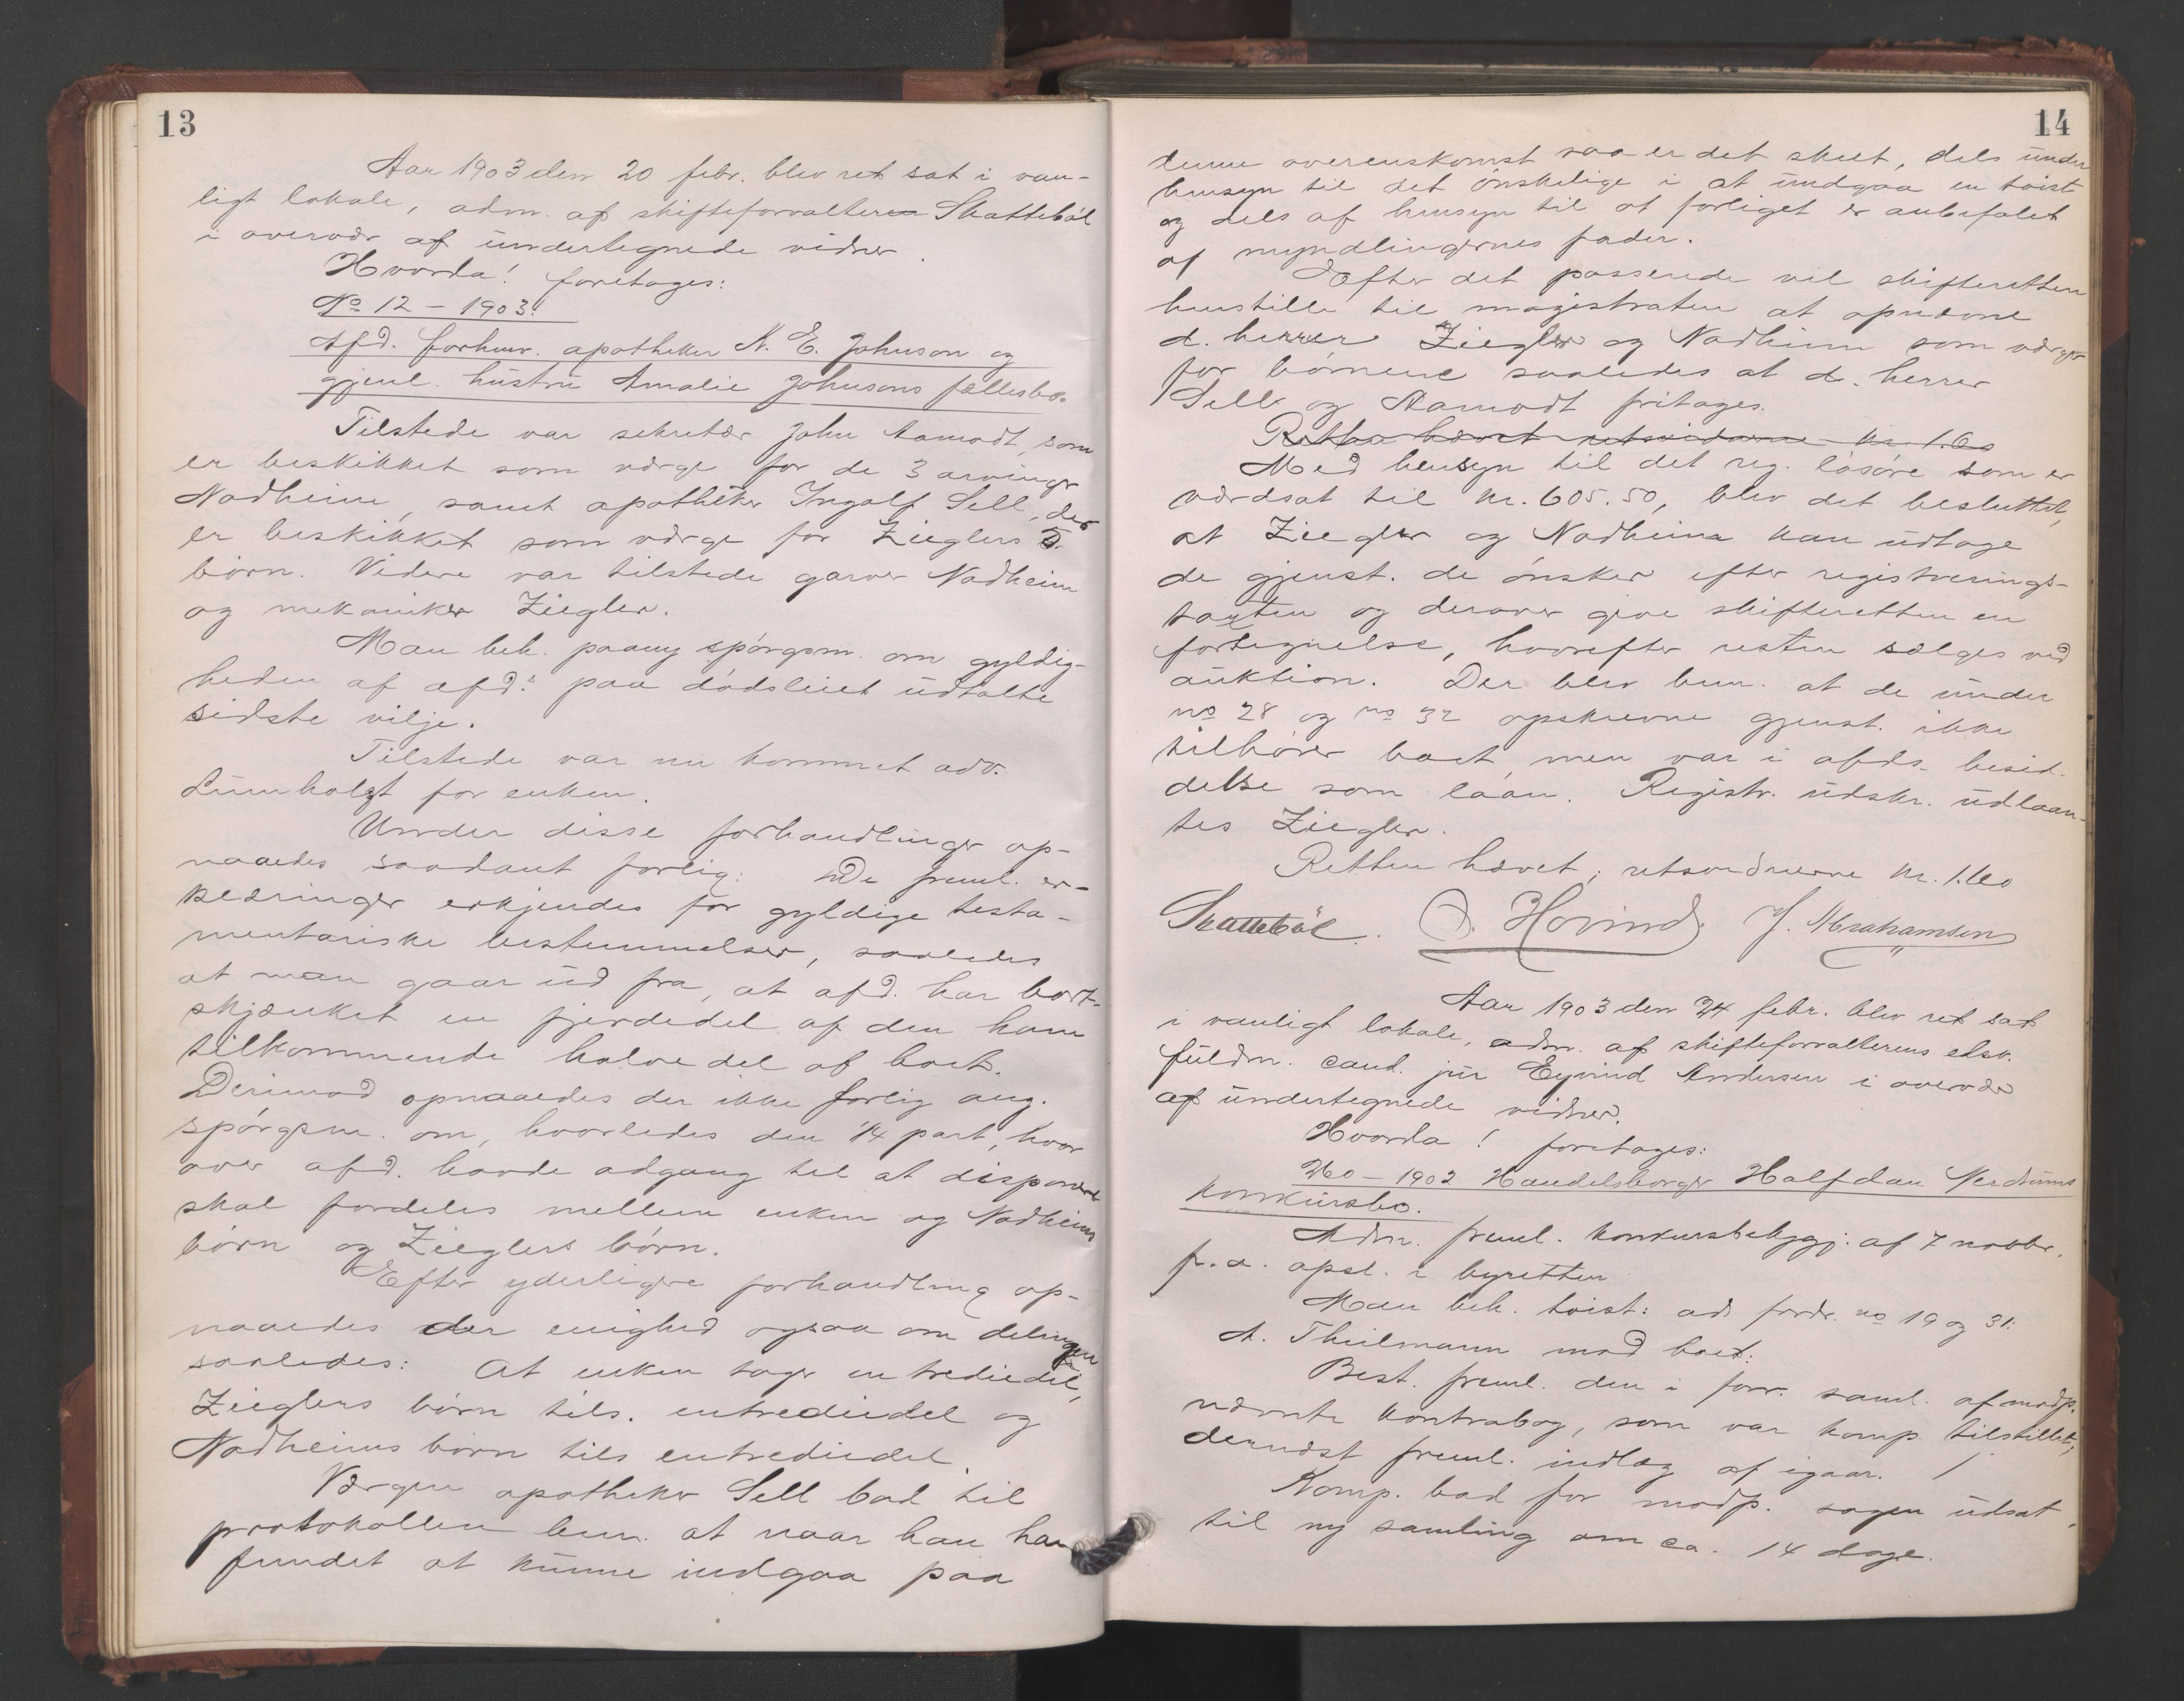 13
Aar 1903 den 20 febr. blev ret sat i van-
ligt lokale, adm. af skifteforvalteren Skattebøl
i overvær af undertegnede vidner.
Hvorda! foretoges:
No 12 – 1903.
Afd. forhenv. apotheker N. E. Johnson og
gjenl. hustru Amalie Johnsons fællesbo.
Tilstede var sekretær John Aamodt, som
er beskikket som værge for de 3 arvinger
Nadheim, samt apotheker Ingolf Sell, der
er beskikket som værge for Zieglers 5
børn. Videre var tilstede garver Nadheim
og mekaniker Ziegler.
Man beh. paany spørgsm. om gyldig-
heden af afd.s paa dødsleiet udtalte
sidste vilje.
Tilstede var nu kommet adv.
Lumholtz for enken.
Under disse forhandlinger op-
naaedes saadant forlig: De freml. er-
klæringer erkjendes for gyldige testa-
mentariske bestemmelser, saaledes
at man gaar ud fra, at afd. har bort-
skjænket en fjerdedel af den ham
tilkommende halvedel af boet.
Derimod opnaaedes der ikke forlig ang.
spørgsm. om, hvorledes den 1/4 part, hvor
over afd. havde adgang til at disponere
skal fordeles mellem enken og Nadheims
børn og Zieglers børn.
Efter yderligere forhandling op-
naaedes der enighed ogsaa om delingen
saaledes: At enken tager en trediedel,
Zieglers børn tils. entrediedel og
Nadheims børn tils entrediedel.
Værgen apotheker Sell bad til
protokollen bem. at naar han har
fundet at kunne indgaa paa
14
denne overenskomst saa er det skeet, dels under
hensyn til det ønskelige i at undgaa en tvist
og dels af hensyn til at forliget er anbefalet
af myndlingernes fader.
Efter det passerede vil skifteretten
henstille til magistraten at opnævne
d. herrer Ziegler og Nadheim som værger
for børnene saaledes at d. herrer
Sell og Aamodt fritages.
Retten hævet retsvidnerne kr. 1.60
Med hensyn til det reg. løsøre som er
værdsat til kr. 605.50, blev det besluttet,
at Ziegler og Nadheim kan udtage
de gjenst. de ønsker efter registrerings-
taxten og derover give skifteretten en
fortegnelse, hvorefter resten sælges ved
auktion. Der blev bem. at de under
no 28 og no 32 opskrevne gjenst. ikke
tilhører boet, men var i afds. besid-
delse som laan. Registr. udskr. udlaan-
tes Ziegler.
Retten hævet; retsvidnerne kr. 1.60
Skattebøl. O. Hovind. J. Abrahamsen
Aar 1903 den 24 febr. blev ret sat
i vanligt lokale, adm. af skifteforvalterens edsv.
fuldm. cand. jur Eyvind Andersen i overvær
af undertegnede vidner.
Hvorda! foretoges:
260 – 1902 Handelsborger Halfdan Nerdrums
konkursbo.
Adm. freml. konkursbekggj. af 7 novbr.
f. a. opsl. i byretten
Man beh. tvist: ad fordr. no 19 og 31:
A. Thilmann mod boet:
Best. freml. den i forr. saml. af modp.
nævnte kontrabog, som var komp. tilstillet,
dernæst freml. indlæg af igaar. /
Komp. bad for modp. sagen udsat
til ny samling om ca. 14 dage.